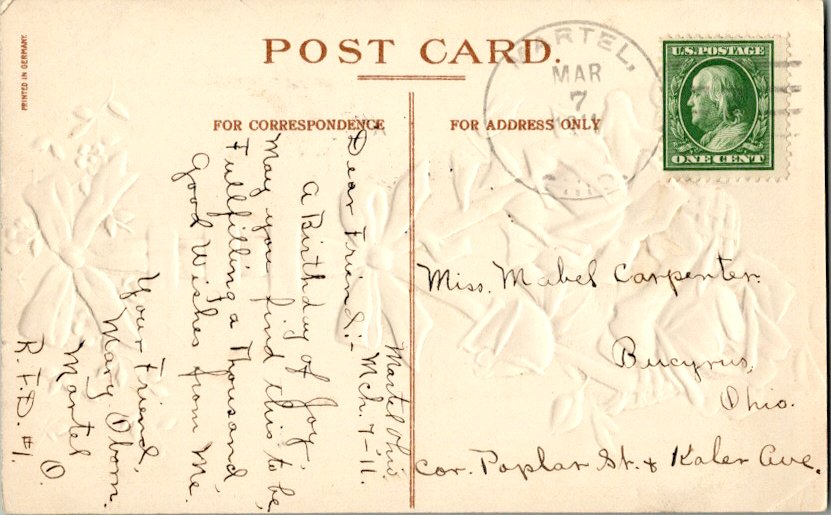 POST CARD.
PRINTED IN GERMANY.
MARTEL,
MAR
7
1911
O.
U.S. POSTAGE
ONE CENT
FOR CORRESPONDENCE
FOR ADDRESS ONLY
Martel Ohio.
Mch. 7-'11.
Dear Friend:-
A Birthday of Joy,
May you find this to be,
Fullfilling a Thousand
Good Wishes from Me.
Your Friend,
Mary Oborn.
Martel
O.
R.F.D. #1.
Miss. Mabel Carpenter.
Bucyrus,
Ohio.
Cor. Poplar St. & Kaler Ave.